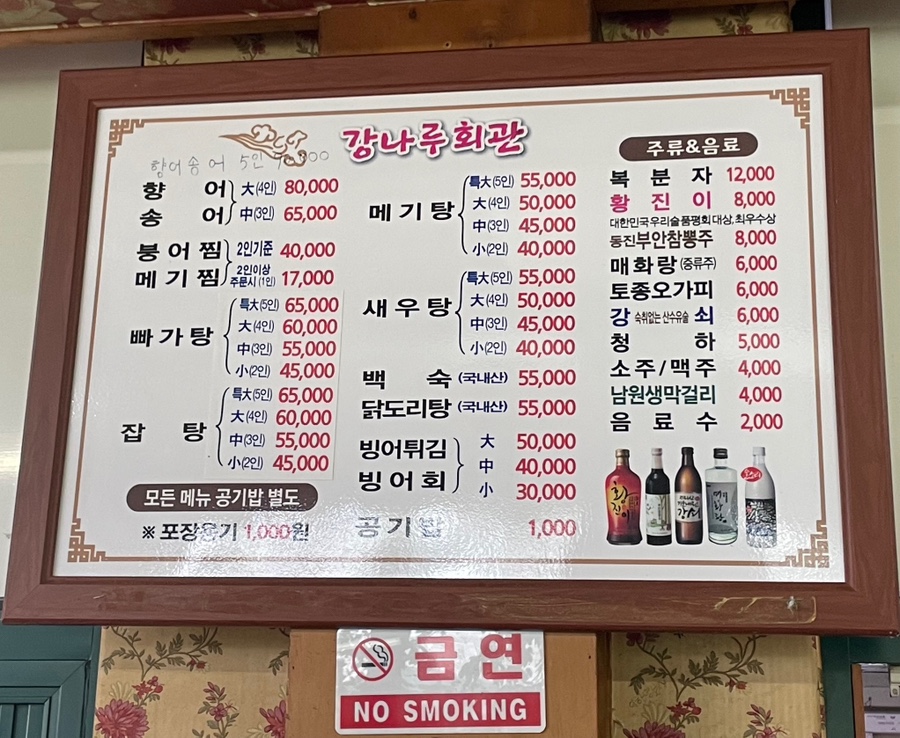 강나루회관
향어송어 5인
향어 大(4인) 80,000
송어 中(3인) 65,000
붕어찜 2인기준 40,000
메기찜 2인이상 주문시(1인) 17,000
빠가탕 특大(5인) 65,000
大(4인) 60,000
中(3인) 55,000
小(2인) 45,000
잡탕 특大(5인) 65,000
大(4인) 60,000
中(3인) 55,000
小(2인) 45,000
모든 메뉴 공기밥 별도
※ 포장용기 1,000원
메기탕 특大(5인) 55,000
大(4인) 50,000
中(3인) 45,000
小(2인) 40,000
새우탕 특大(5인) 55,000
大(4인) 50,000
中(3인) 45,000
小(2인) 40,000
백숙 (국내산) 55,000
닭도리탕 (국내산) 55,000
빙어튀김 大 50,000
中 40,000
빙어회 小 30,000
공기밥 1,000
주류&음료
복분자 12,000
황진이 8,000
대한민국우리술품평회 대상,최우수상
동진부안참뽕주 8,000
매화랑(증류주) 6,000
토종오가피 6,000
강 숙취없는 산수유술 쇠 6,000
청하 5,000
소주/맥주 4,000
남원생막걸리 4,000
음료수 2,000
황진이
강쇠
매화랑
금연
NO SMOKING